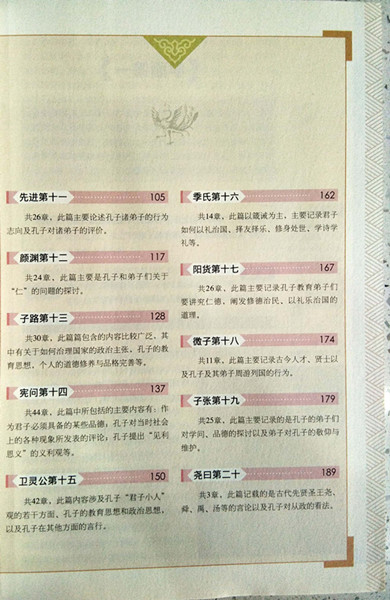 先进第十一 105
共26章，此篇主要论述孔子诸弟子的行为
志向及孔子对诸弟子的评价。
颜渊第十二 117
共24章，此篇主要是孔子和弟子们关于
“仁”的问题的探讨。
子路第十三 128
共30章，此篇篇包含的内容比较广泛，其
中有关于如何治理国家的政治主张，孔子的教
育思想，个人的道德修养与品格完善等。
宪问第十四 137
共44章，此篇中所包括的主要内容有：作
为君子必须具备的某些品德；孔子对当时社会
上的各种现象所发表的评论；孔子提出“见利
思义”的义利观等。
卫灵公第十五 150
共42章，此篇内容涉及孔子“君子小人”
观的若干方面、孔子的教育思想和政治思想，
以及孔子在其他方面的言行。
季氏第十六 162
共14章，此篇以箴诫为主，主要记录君子
如何以礼治国、择友择乐、修身处世、学诗学
礼等。
阳货第十七 167
共26章，此篇主要记录孔子教育弟子们
要讲究仁德，阐发修德治民、以礼乐治国的
道理。
微子第十八 174
共11章，此篇主要记录古今人才、贤士以
及孔子及其弟子周游列国的行为。
子张第十九 179
共25章，此篇主要记录的是孔子的弟子们
对学问、品德的探讨以及弟子对孔子的敬仰与
维护。
尧曰第二十 189
共3章，此篇记载的是古代先贤圣王尧、
舜、禹、汤等的言论以及孔子对从政的看法。